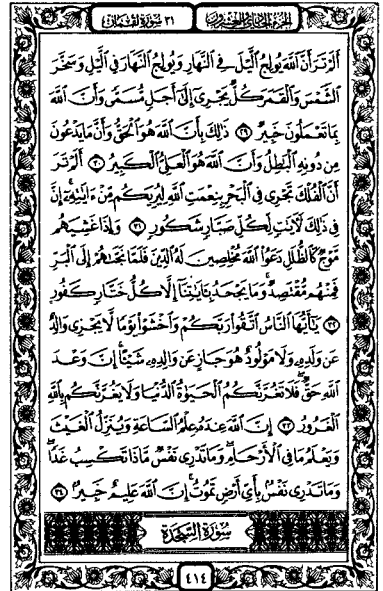 ٣١ سورة لقمان
الجزء الحادي والعشرون
أَلَمْ تَرَ أَنَّ اللَّهَ يُولِجُ الَّيْلَ فِي النَّهَارِ وَيُولِجُ النَّهَارَ فِي الَّيْلِ وَسَخَّرَ
الشَّمْسَ وَالْقَمَرَ كُلٌّ يَجْرِي إِلَىٰ أَجَلٍ مُسَمًّى وَأَنَّ اللَّهَ
بِمَا تَعْمَلُونَ خَبِيرٌ ٢٩ ذَٰلِكَ بِأَنَّ اللَّهَ هُوَ الْحَقُّ وَأَنَّ مَا يَدْعُونَ
مِن دُونِهِ الْبَٰطِلُ وَأَنَّ اللَّهَ هُوَ الْعَلِيُّ الْكَبِيرُ ٣٠ أَلَمْ تَرَ
أَنَّ الْفُلْكَ تَجْرِي فِي الْبَحْرِ بِنِعْمَتِ اللَّهِ لِيُرِيَكُم مِّنْ ءَايَٰتِهِ إِنَّ
فِي ذَٰلِكَ لَءَايَٰتٍ لِّكُلِّ صَبَّارٍ شَكُورٍ ٣١ وَإِذَا غَشِيَهُم
مَّوْجٌ كَالظُّلَلِ دَعَوُا اللَّهَ مُخْلِصِينَ لَهُ الدِّينَ فَلَمَّا نَجَّىٰهُمْ إِلَى الْبَرِّ
فَمِنْهُم مُّقْتَصِدٌ وَمَا يَجْحَدُ بِـَٔايَٰتِنَا إِلَّا كُلُّ خَتَّارٍ كَفُورٍ
٣٢ يَٰأَيُّهَا النَّاسُ اتَّقُوا رَبَّكُمْ وَاخْشَوْا يَوْمًا لَّا يَجْزِي وَالِدٌ
عَن وَلَدِهِ وَلَا مَوْلُودٌ هُوَ جَازٍ عَن وَالِدِهِ شَيْـًٔا إِنَّ وَعْدَ
اللَّهِ حَقٌّ فَلَا تَغُرَّنَّكُمُ الْحَيَوٰةُ الدُّنْيَا وَلَا يَغُرَّنَّكُم بِاللَّهِ
الْغَرُورُ ٣٣ إِنَّ اللَّهَ عِندَهُ عِلْمُ السَّاعَةِ وَيُنَزِّلُ الْغَيْثَ
وَيَعْلَمُ مَا فِي الْأَرْحَامِ وَمَا تَدْرِي نَفْسٌ مَّاذَا تَكْسِبُ غَدًا
وَمَا تَدْرِي نَفْسٌ بِأَيِّ أَرْضٍ تَمُوتُ إِنَّ اللَّهَ عَلِيمٌ خَبِيرٌ ٣٤
سُورَةُ السَّجْدَةِ
٤١٤